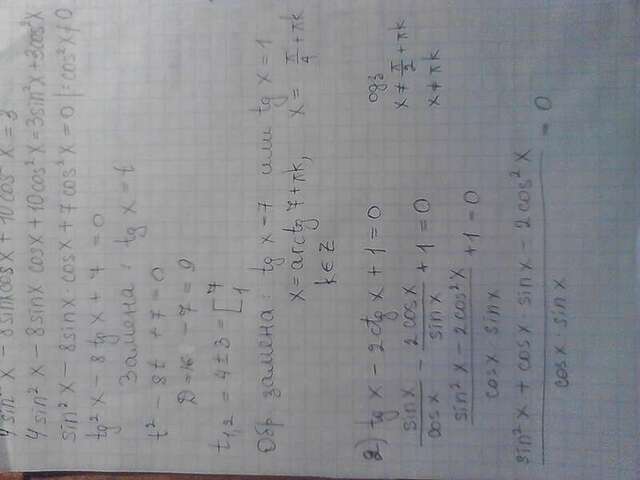 4 sin² x - 8 sinx cosx + 10 cos² x = 3
4 sin² x - 8 sinx cosx + 10 cos² x = 3 sin² x + 3 cos² x
sin² x - 8 sinx · cosx + 7 cos² x = 0 |: cos² x ≠ 0
tg² x - 8 tg x + 7 = 0
Замена: tg x = t
t² - 8t + 7 = 0
D = 16 - 7 = 9
t₁,₂ = 4 ± 3 = [ 7 1
Обр замена: tg x = 7 или tg x = 1
x = arctg 7 + πk, x = π/4 + πk
k ∈ Z
2) tg x - 2 ctg x + 1 = 0 одз
sinx/cosx - 2cosx/sinx + 1 = 0 x ≠ π/2 + πk
(sin² x - 2 cos² x)/(cosx · sinx) + 1 = 0 x ≠ πk
(sin² x + cosx · sinx - 2 cos² x)/(cosx · sinx) = 0